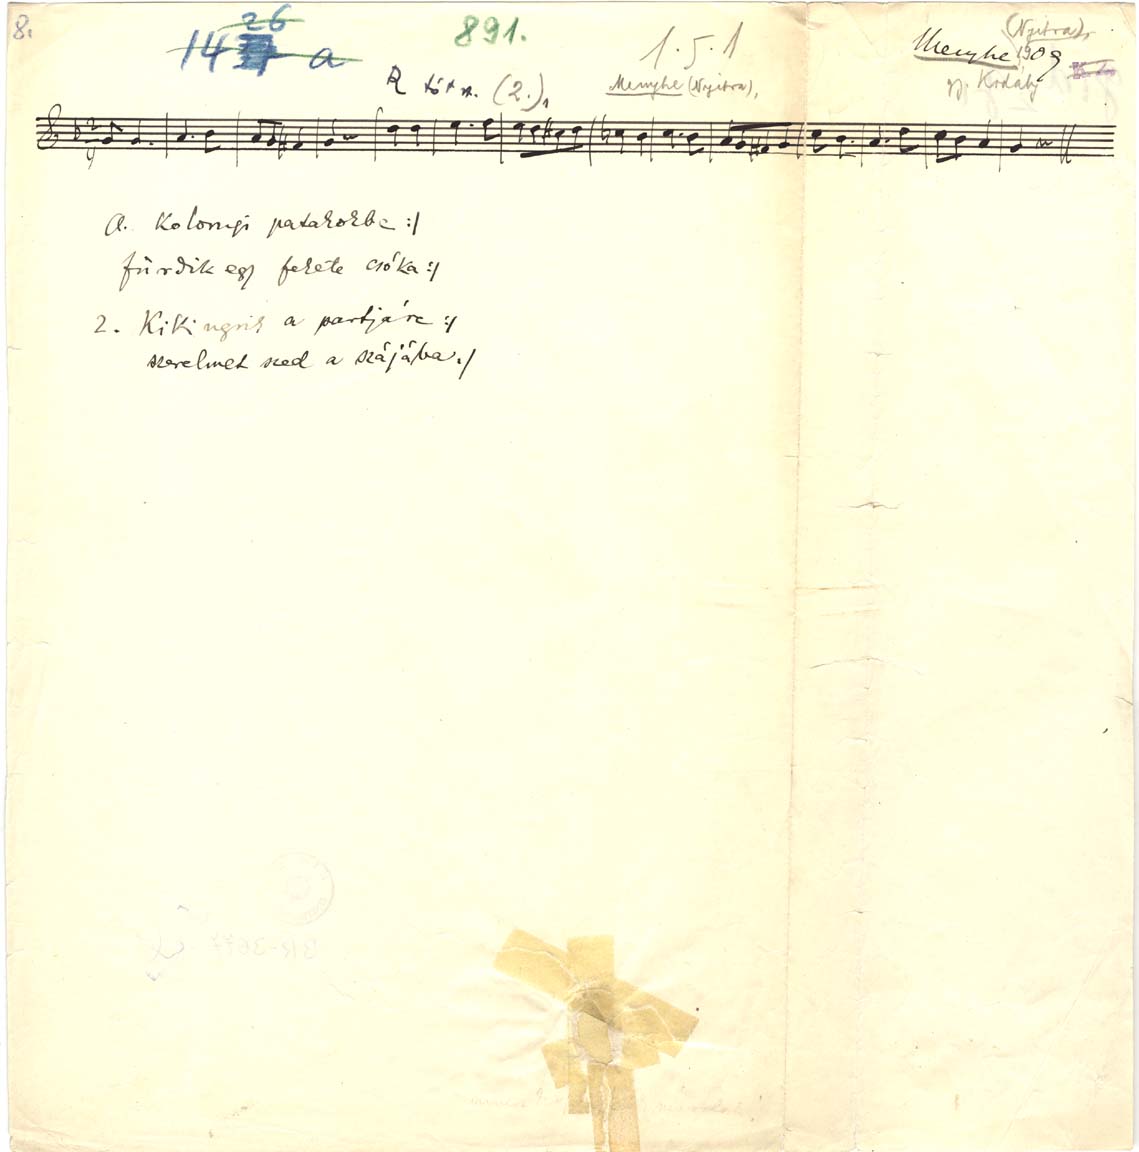 8.
26
14 a
891.
1.5.1
(Nyitra),
Menyhe 1909
R tót r. (2.),
Menyhe (Nyitra),
gy. Kodály
2
4
A kolonyi patakokba :/
fürdik egy fekete csóka :/
2. Ki Ki ugrik a partjára :/
szerelmet szed a szájába :/